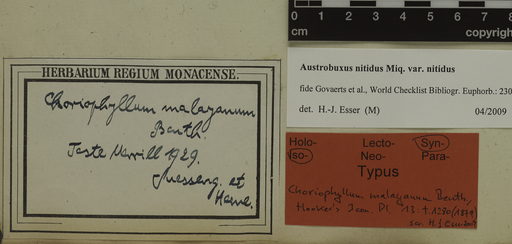 0 1 2 3 4 5 6 7 8
cm copyrigh
HERBARIUM REGIUM MONACENSE.
Choriophyllum malayanum
Benth.
Teste Merrill 1929.
Messeng. et
Austrobuxus nitidus Miq. var. nitidus
fide Govaerts et al., World Checklist Bibliogr. Euphorb.: 230
det. H.-J. Esser (M) 04/2009
Holo- Lecto- Syn-
Iso- Neo- Para-
Typus
Choriophyllum malayanum Benth,
Hooker's Icon. Pl. 13: t. 1280 (1879)